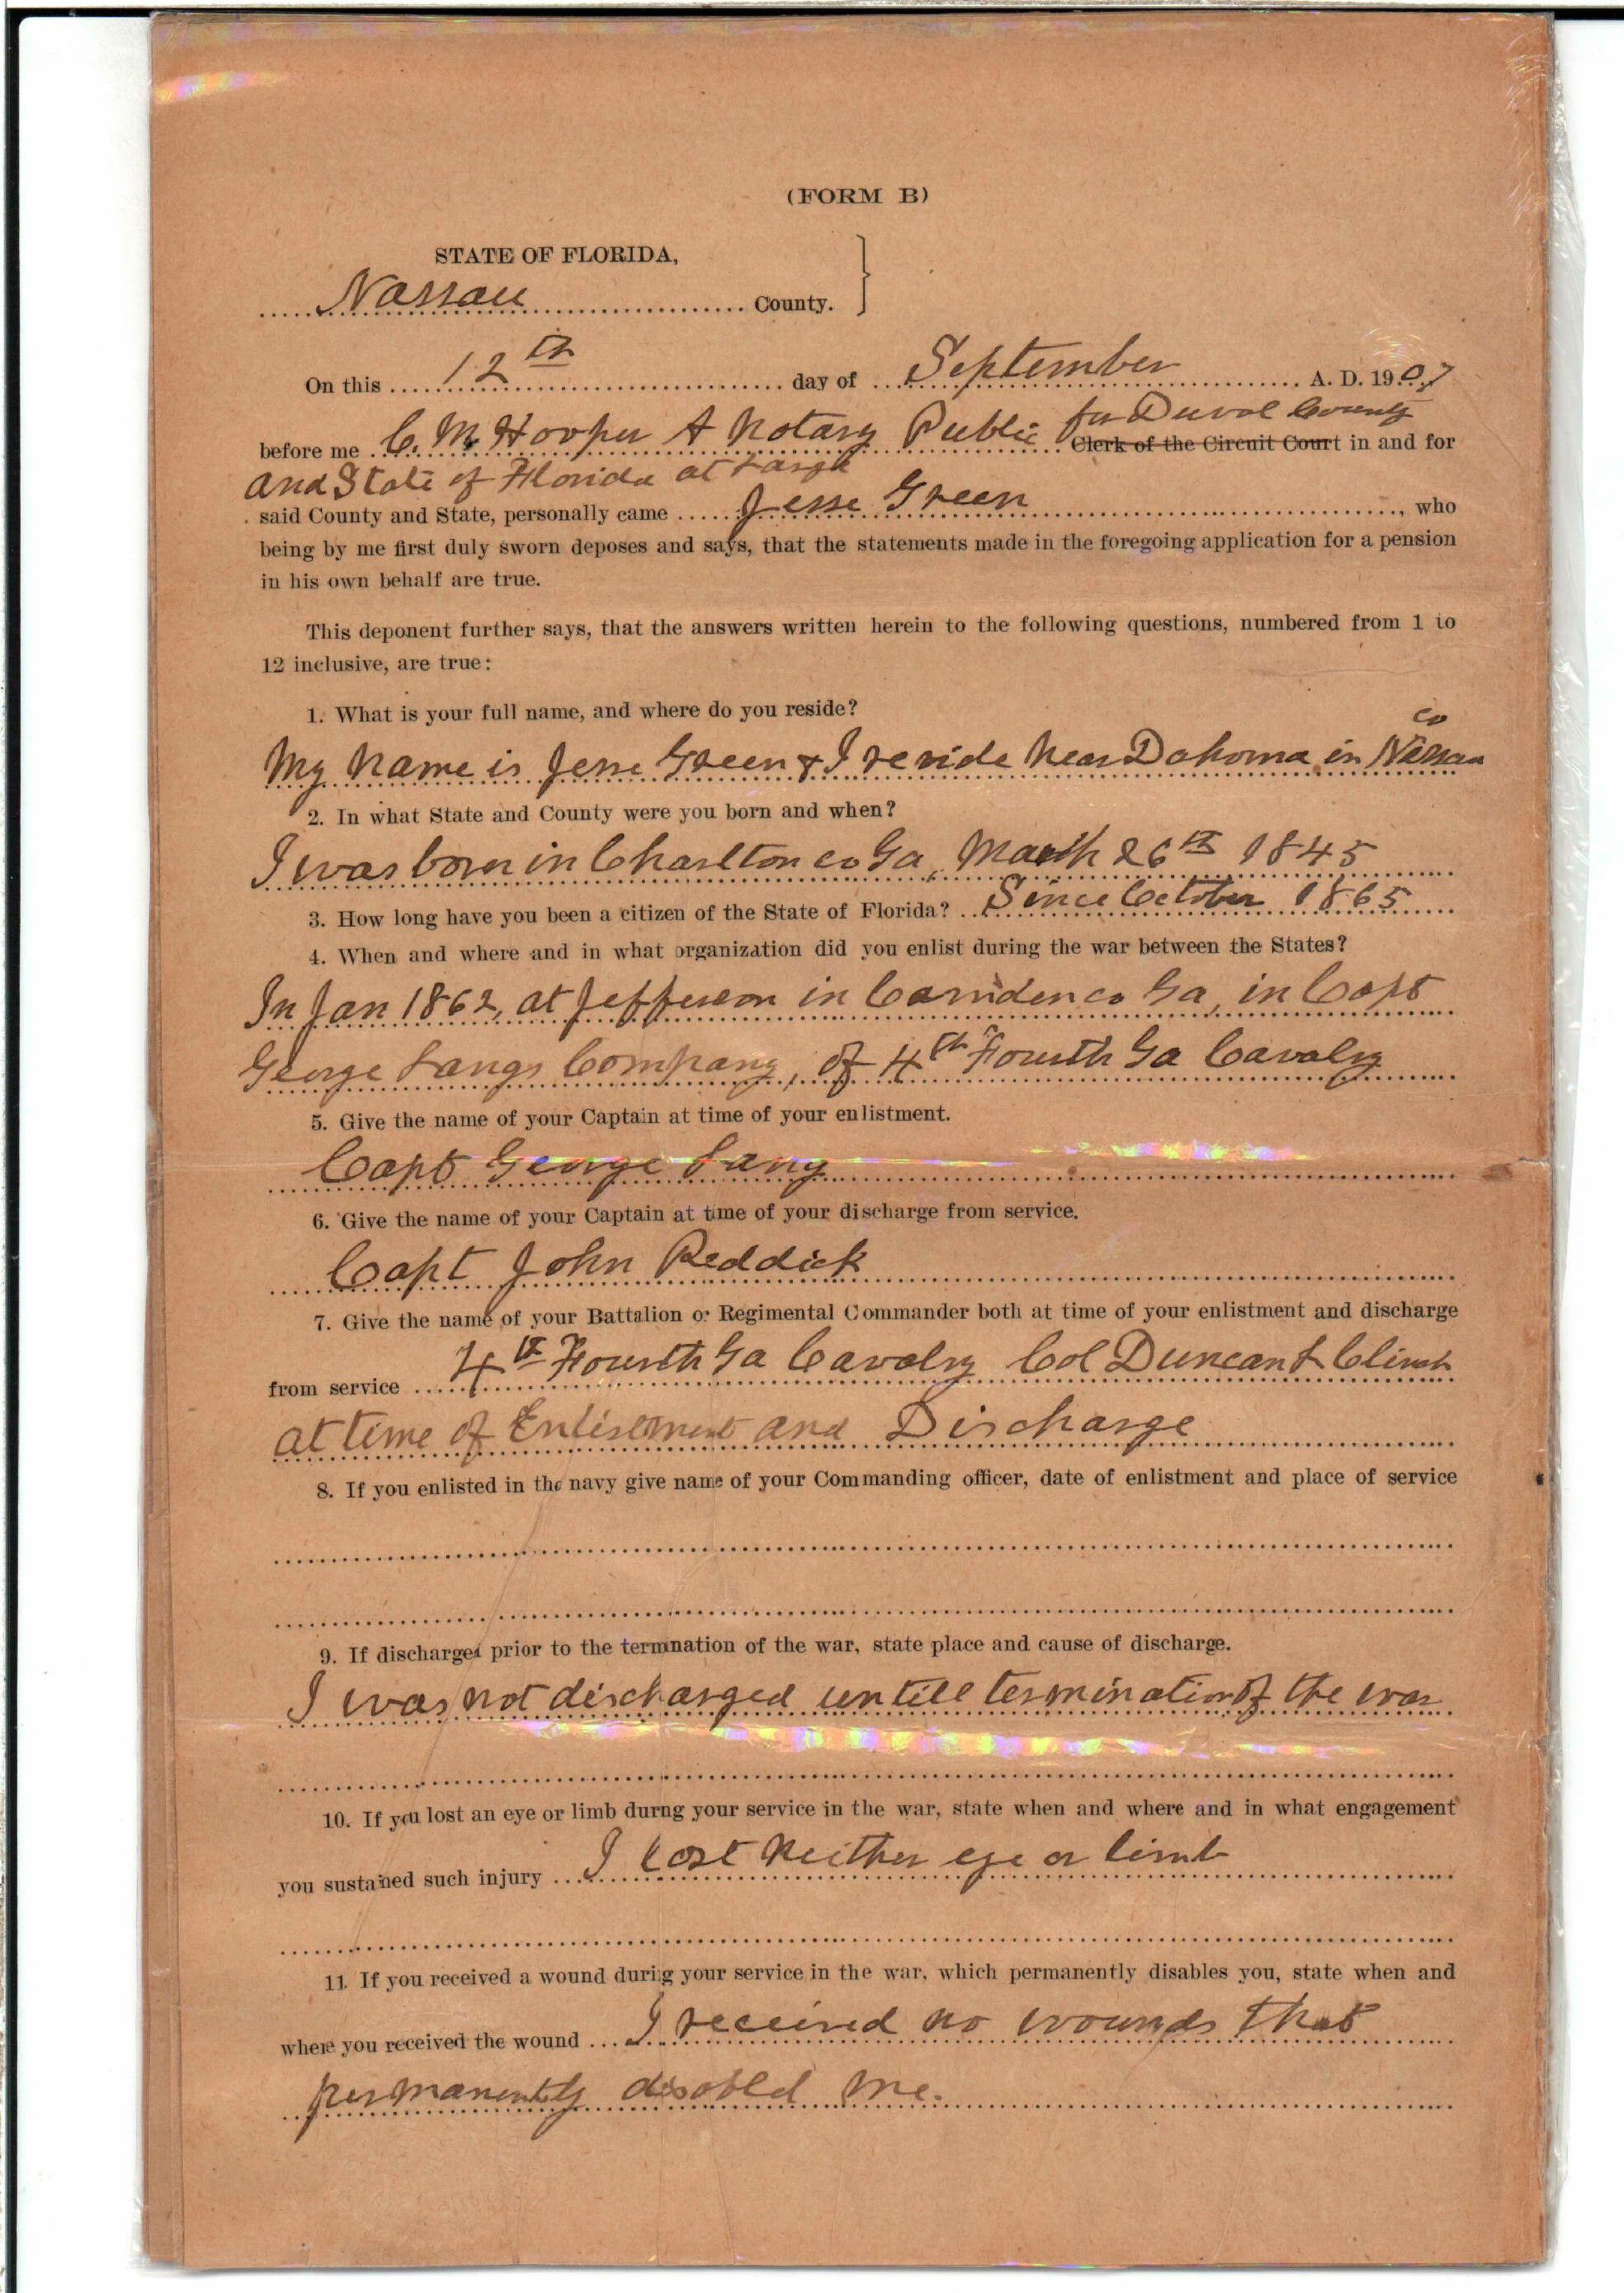 (FORM B)
STATE OF FLORIDA,
Nassau County.
On this 12th day of September A. D. 1907
before me C. M. Hooper A Notary Public for Duval County Clerk of the Circuit Court in and for
and State of Florida at Large
said County and State, personally came Jesse Green, who
being by me first duly sworn deposes and says, that the statements made in the foregoing application for a pension
in his own behalf are true.
This deponent further says, that the answers written herein to the following questions, numbered from 1 to
12 inclusive, are true:
1. What is your full name, and where do you reside?
My Name is Jesse Green & I reside Near Dahoma in Nassau co
2. In what State and County were you born and when?
I was born in Charlton co Ga, March 26th 1845
3. How long have you been a citizen of the State of Florida? Since October 1865
4. When and where and in what organization did you enlist during the war between the States?
In Jan 1862, at Jefferson in Camden co Ga, in Capt
George Langs Company, of 4th Fourth Ga Cavalry
5. Give the name of your Captain at time of your enlistment.
Capt George Lang
6. Give the name of your Captain at time of your discharge from service.
Capt John Reddick
7. Give the name of your Battalion or Regimental Commander both at time of your enlistment and discharge
from service 4th Fourth Ga Cavalry Col Duncan L Clinch
at time of Enlistment and Discharge
8. If you enlisted in the navy give name of your Commanding officer, date of enlistment and place of service
9. If discharged prior to the termination of the war, state place and cause of discharge.
I was not discharged untill termination of the war
10. If you lost an eye or limb durng your service in the war, state when and where and in what engagement
you sustained such injury I lost Neither eye or limb
11. If you received a wound during your service in the war, which permanently disables you, state when and
where you received the wound I received no wounds that
permanently disabled me.